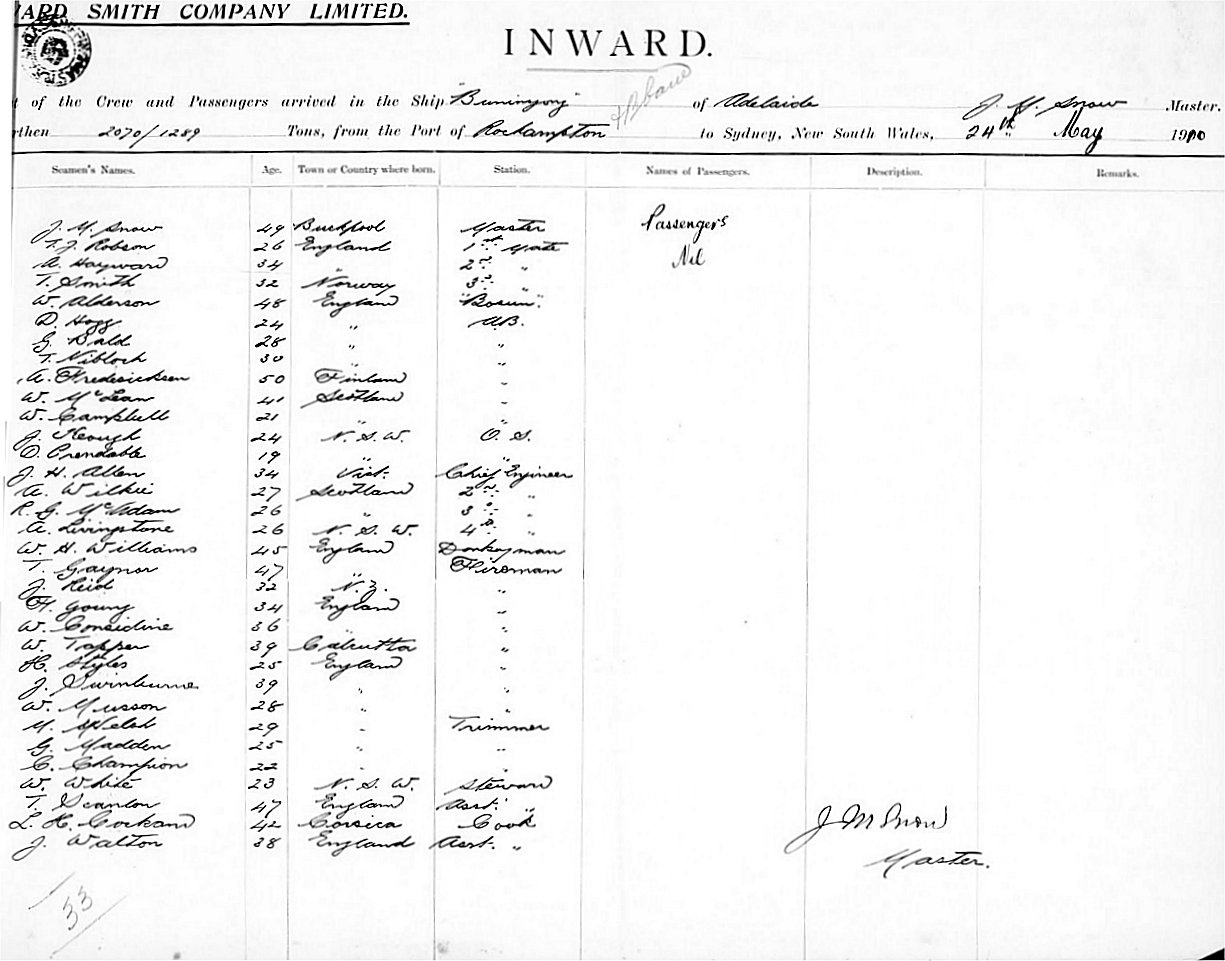 ARD SMITH COMPANY LIMITED.
INWARD.
of the Crew and Passengers arrived in the Ship "Buninyong" of Adelaide J. M. Snow Master.
rthen 2070/1289 Tons, from the Port of Rockhampton to Sydney, New South Wales, 24th May 1900
Seamen's Names. Age. Town or Country where born. Station. Names of Passengers. Description. Remarks.
J. M. Snow 49 Buckpool Master Passengers
T. J. Robson 26 England 1st Mate
A. Hayward 34 " 2nd " Nil
T. Smith 32 Norway 3rd "
W. Alderson 48 England "Bosun"
D. Hogg 24 " A.B.
G. Bald 28 " "
T. Nibloch 30 " "
A. Frederickson 50 Finland "
W. McLean 41 Scotland "
W. Campbell 21 " "
J. Keough 24 N. S. W. O. S.
O. Prendable 19 " "
J. H. Allen 34 Vict. Chief Engineer
A. Wilkie 27 Scotland 2nd "
R. G. McAdam 26 " 3rd "
A. Livingstone 26 N. S. W. 4th "
W. H. Williams 45 England Donkeyman
T. Gaynor 47 " Fireman
J. Reid 32 N.Z. "
H. Young 34 England "
W. Considine 36 " "
W. Tapper 39 Calcutta "
H. Styles 25 England "
J. Swinburne 39 " "
W. Musson 28 " "
M. Welsh 29 " Trimmer
G. Madden 25 " "
C. Champion 22 " "
W. White 23 N. S. W. Steward
T. Scanlon 47 England Asst. "
L. H. 42 Corsica Cook J M Snow
J. Walton 38 England Asst. " Master.
33